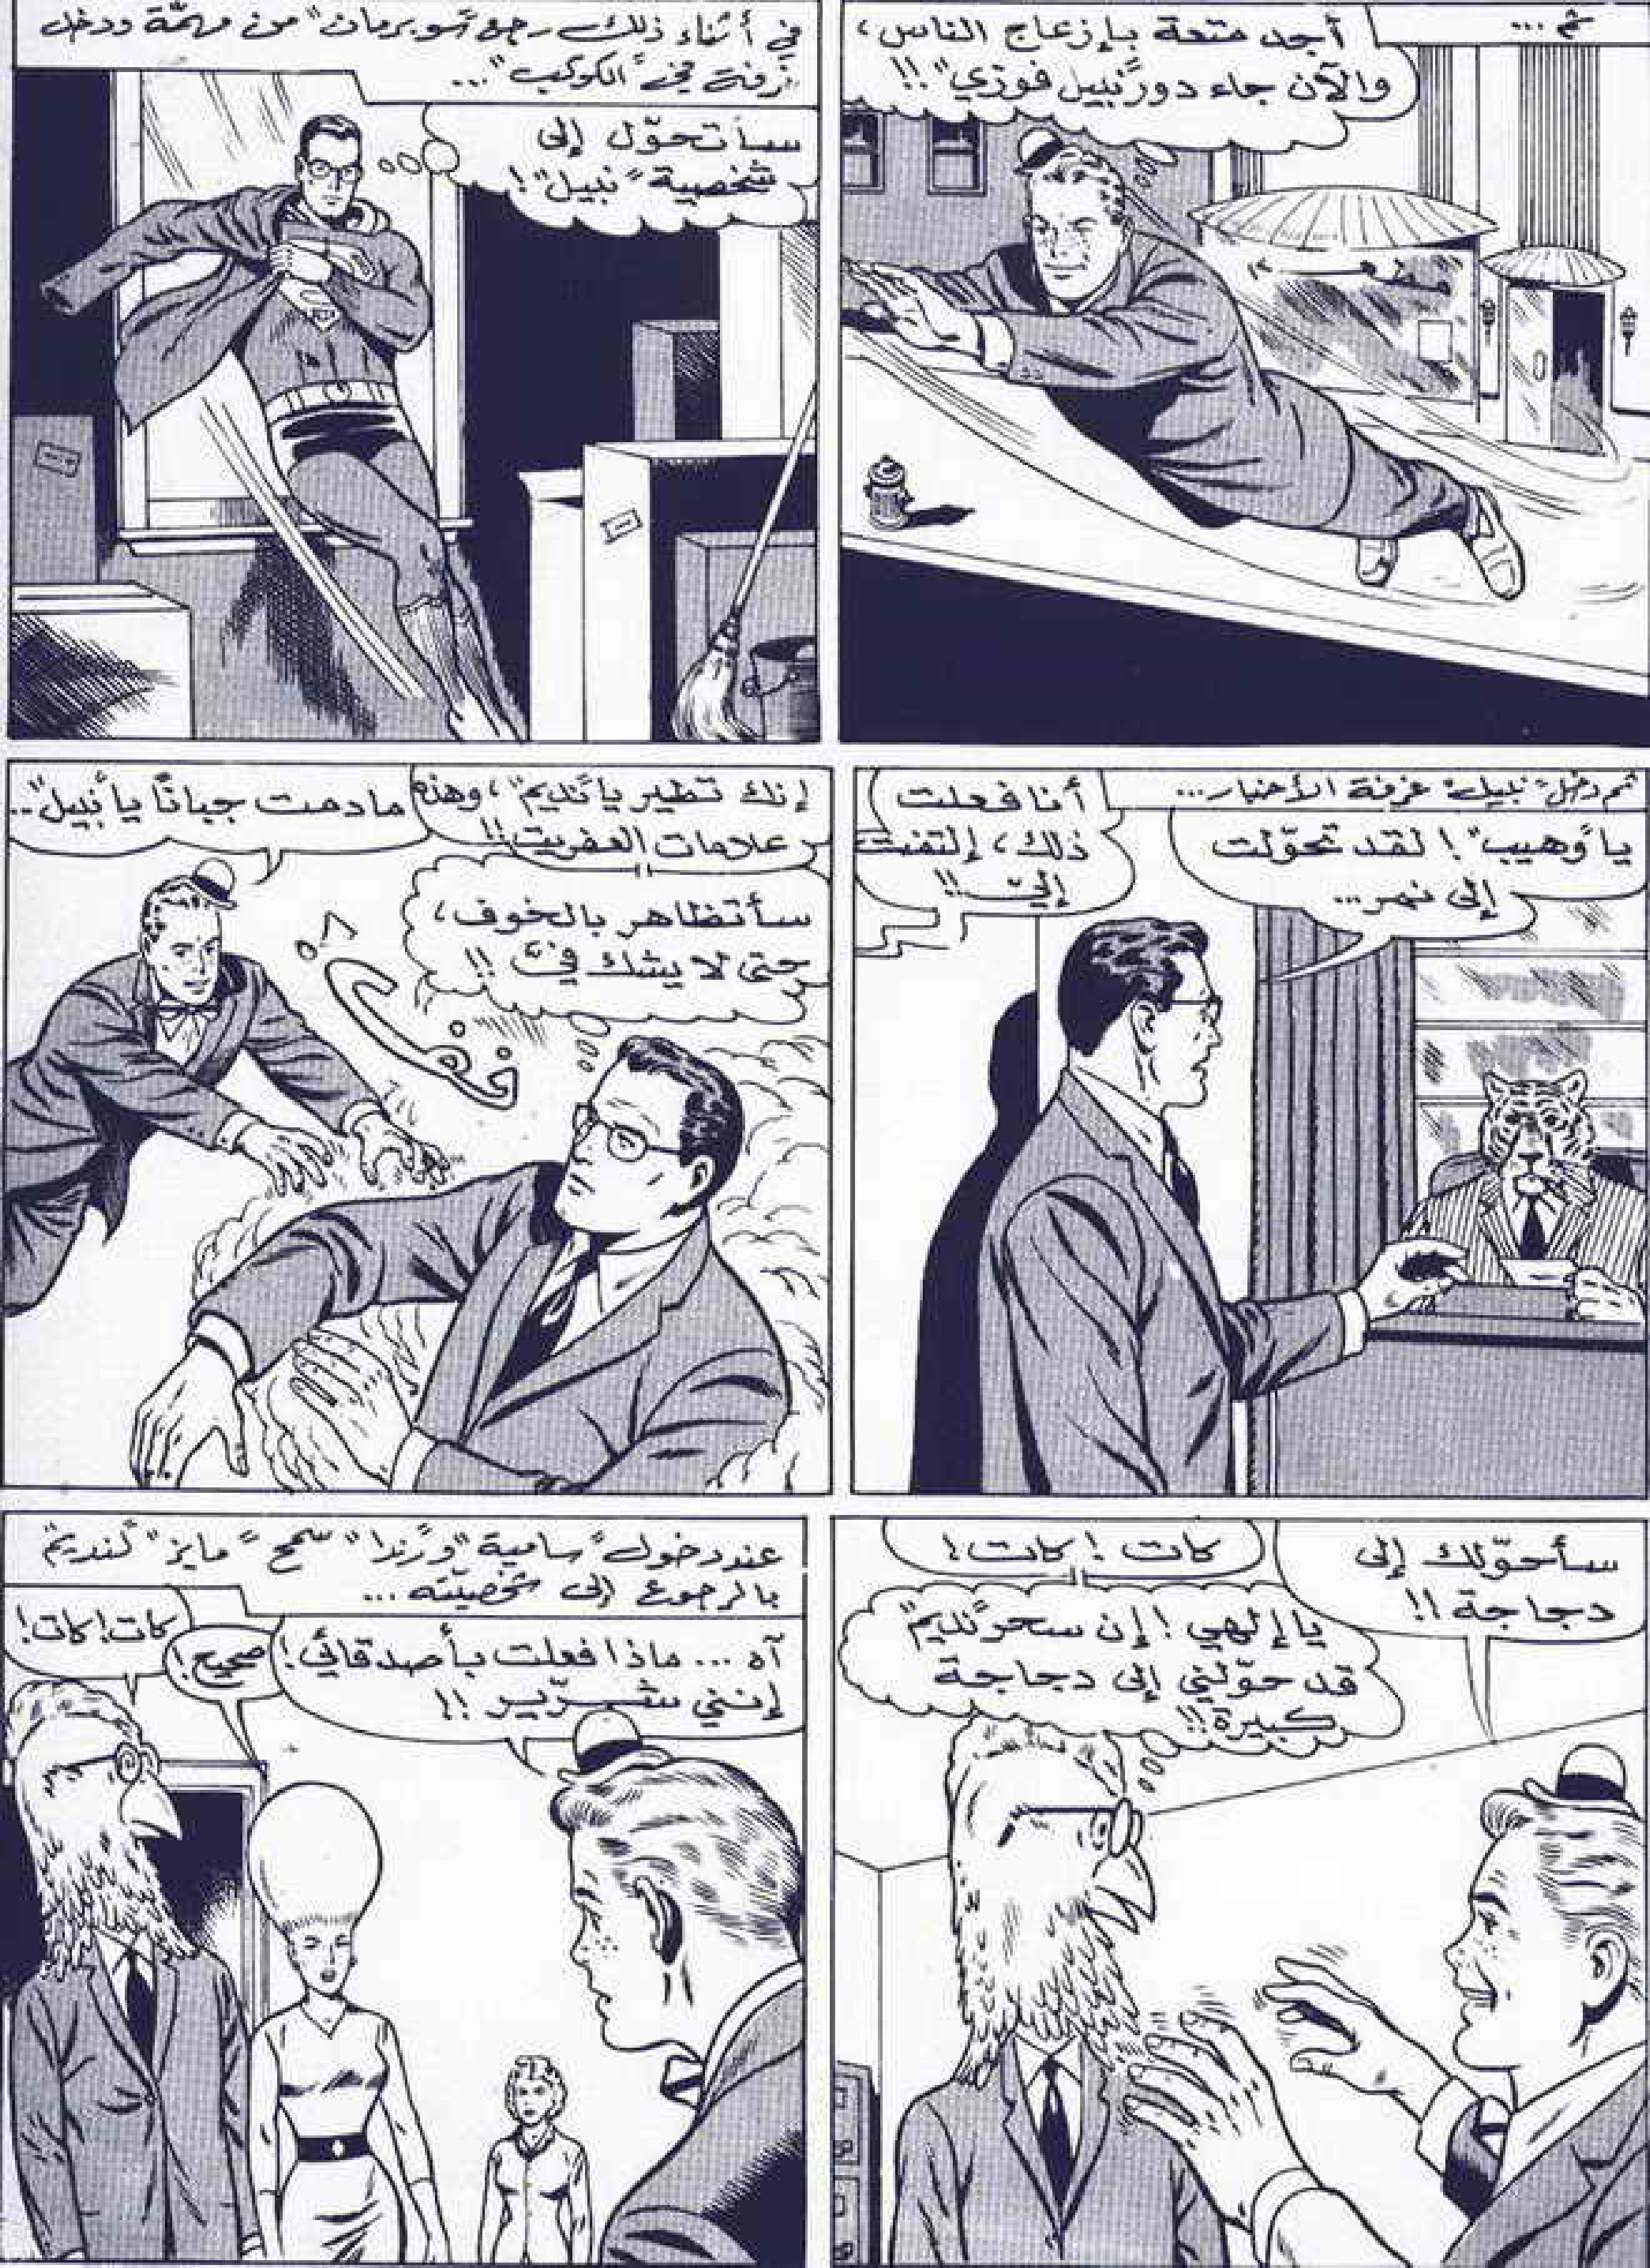 ثم ...
أجد متعة بإزعاج الناس،
والآن جاء دور "نبيل فوزي" !!
مطعم
في أثناء ذلك رجع "سوبرمان" من مهمّة ودخل
غرفة في "الكوكب"...
سأتحوّل إلى
شخصية "نبيل"!
ثم دخل "نبيل" غرفة الأخبار...
يا "وهيب" ! لقد تحوّلت
إلى نمر...
أنا فعلت
ذلك، إلتفت
إليّ !!
إنك تطير يا "نديم"، وهذه
علامات العفريت !!
مادمت جباناً يا "نبيل"..
سأتظاهر بالخوف،
حتى لا يشك فيّ !!
سأحوّلك إلى
دجاجة !!
كات ! كات !
يا إلهي ! إن سحر "نديم"
قد حوّلني إلى دجاجة
كبيرة !!
عند دخول "سامية" و "رندا" سمح "مايز" لـ"نديم"
بالرجوع إلى شخصيّته ...
آه ... ماذا فعلت بأصدقائي !
إنني شرّير !!
صحيح !
كات ! كات !